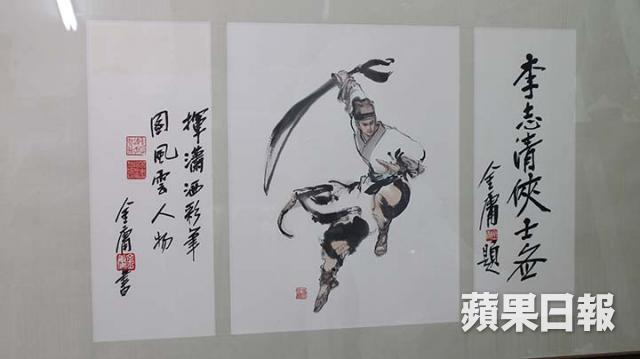 李志清俠士
金庸題
揮瀟洒彩筆
圖風雲人物
金庸書
蘋果日報